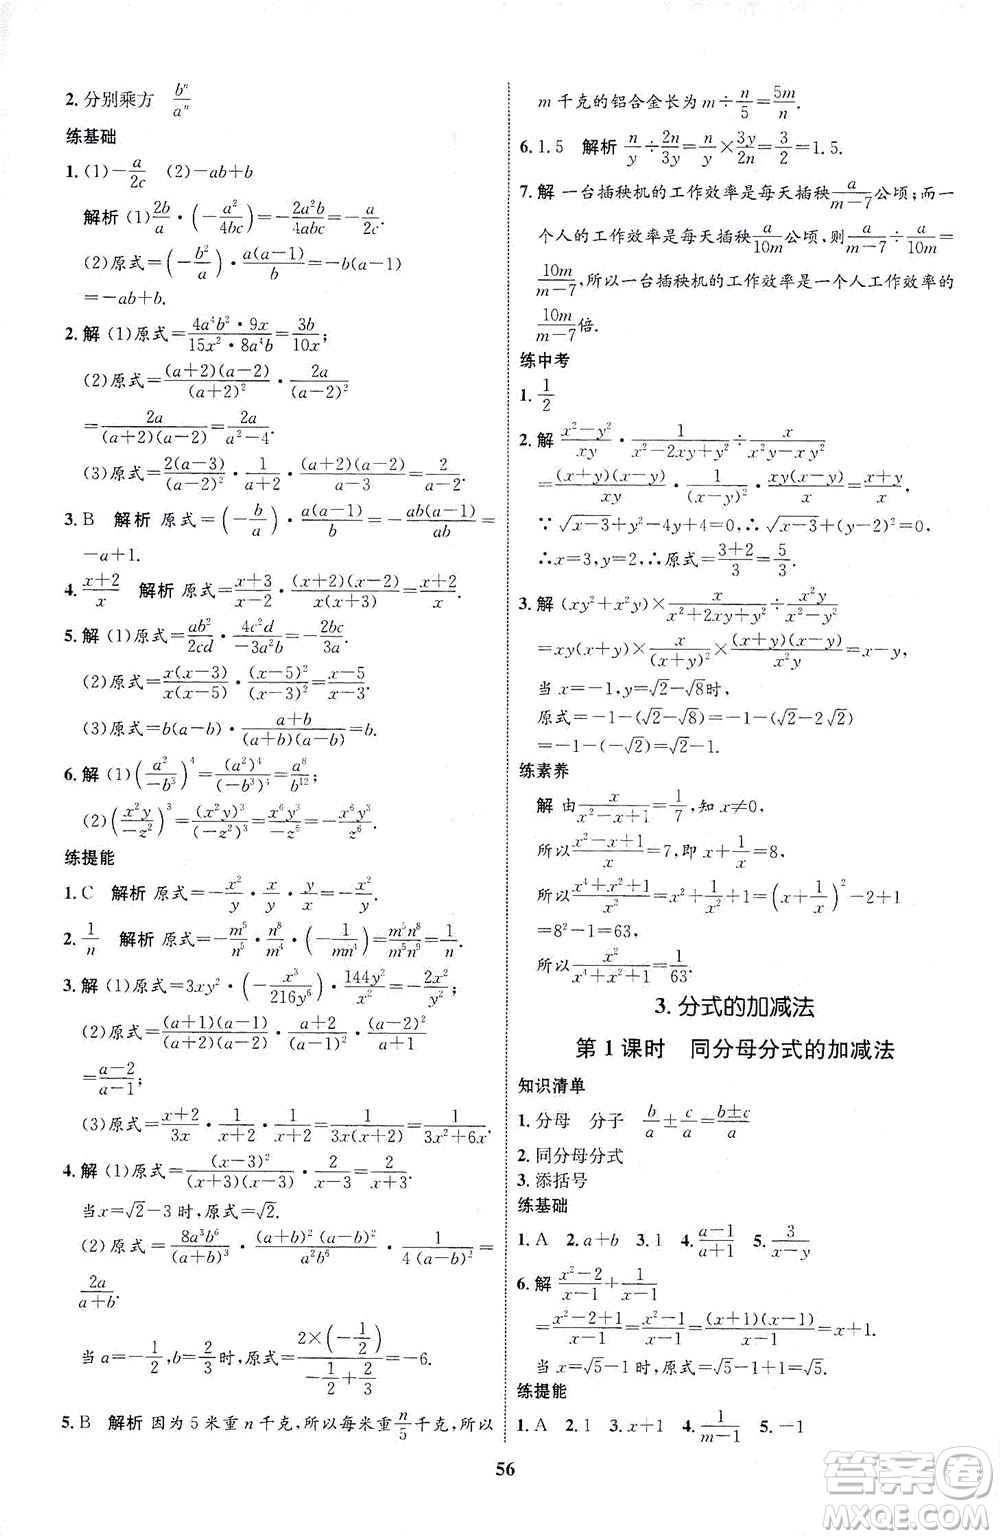 2. 分别乘方 b^n/a^n
练基础
1. (1)-a/2c (2)-ab+b
解析 (1)2b/a·(-a²/4bc)=-2a²b/4abc=-a/2c.
(2)原式=(-b²/a)·a(a-1)/b=-b(a-1)
=-ab+b.
2. 解 (1)原式=4a⁴b²·9x/15x²·8a⁴b=3b/10x;
(2)原式=(a+2)(a-2)/(a+2)²·2a/(a-2)²
=2a/(a+2)(a-2)=2a/a²-4.
(3)原式=2(a-3)/(a-2)²·1/a+2·(a+2)(a-2)/a-3=2/a-2.
3. B 解析 原式=(-b/a)·a(a-1)/b=-ab(a-1)/ab=
-a+1.
4. x+2/x 解析 原式=x+3/x-2·(x+2)(x-2)/x(x+3)=x+2/x.
5. 解 (1)原式=ab²/2cd·4c²d/-3a²b=-2bc/3a.
(2)原式=x(x-3)/x(x-5)·(x-5)²/(x-3)²=x-5/x-3.
(3)原式=b(a-b)·a+b/(a+b)(a-b)=b.
6. 解 (1)(a²/-b³)⁴=(a²)⁴/(-b³)⁴=a⁸/b¹²;
(2)(x²y/-z²)³=(x²y)³/(-z²)³=x⁶y³/-z⁶=-x⁶y³/z⁶.
练提能
1. C 解析 原式=-x²/y·x/y·y/x=-x²/y.
2. 1/n 解析 原式=-m⁵/n⁵·n⁸/m⁴·(-1/mn⁴)=m⁵n⁸/m⁵n⁹=1/n.
3. 解 (1)原式=3xy²·(-x³/216y⁶)·144y²/x²=-2x²/y.
(2)原式=(a+1)(a-1)/(a+2)²·1/a+1·(a+2)(a-2)/(a-1)²·(a+2)=
a-2/a-1;
(3)原式=x+2/3x·1/x+2·1/x+2=1/3x(x+2)=1/3x²+6x.
4. 解 (1)原式=(x-3)²/(x+3)(x-3)·2/x-3=2/x+3.
当x=√2-3时,原式=√2.
(2)原式=8a³b⁶/(a+b)³·(a+b)²(a-b)²/a²b⁶·1/4(a-b)²=
2a/a+b.
当 a=-1/2,b=2/3时,原式=2×(-1/2)/-1/2+2/3=-6.
5. B 解析 因为 5 米重 n 千克,所以每米重n/5千克,所以
m 千克的铝合金长为 m÷n/5=5m/n.
6. 1.5 解析 n/y÷2n/3y=n/y×3y/2n=3/2=1.5.
7. 解 一台插秧机的工作效率是每天插秧a/m-7公顷;而一
个人的工作效率是每天插秧a/10m公顷,则a/m-7÷a/10m=
10m/m-7,所以一台插秧机的工作效率是一个人工作效率的
10m/m-7倍.
练中考
1. 1/2
2. 解 x²-y²/xy·1/x²-2xy+y²÷x/x²y-xy²
=(x+y)(x-y)/xy·1/(x-y)²·xy(x-y)/x=x+y/x.
∵√x-3+y²-4y+4=0,∴√x-3+(y-2)²=0,
∴x=3,y=2,∴原式=3+2/3=5/3.
3. 解 (xy²+x²y)×x/x²+2xy+y²÷x²y/x²-y²
=xy(x+y)×x/(x+y)²×(x+y)(x-y)/x²y=x-y.
当 x=-1,y=√2-√8时,
原式=-1-(√2-√8)=-1-(√2-2√2)
=-1-(-√2)=√2-1.
练素养
解 由x/x²-x+1=1/7,知 x≠0,
所以x²-x+1/x=7,即 x+1/x=8.
所以x⁴+x²+1/x²=x²+1/x²+1=(x+1/x)²-2+1
=8²-1=63,
所以x²/x⁴+x²+1=1/63.
3. 分式的加减法
第 1 课时 同分母分式的加减法
知识清单
1. 分母 分子 b/a±c/a=b±c/a
2. 同分母分式
3. 添括号
练基础
1. A 2. a+b 3. 1 4. a-1/a+1 5. 3/x-y
6. 解 x²-2/x-1+1/x-1
=x²-2+1/x-1=x²-1/x-1=(x+1)(x-1)/x-1=x+1.
当 x=√5-1时,原式=√5-1+1=√5.
练提能
1. A 2. A 3. x+1 4. 1/m-1 5. -1
56
答案圈
MXQE.COM